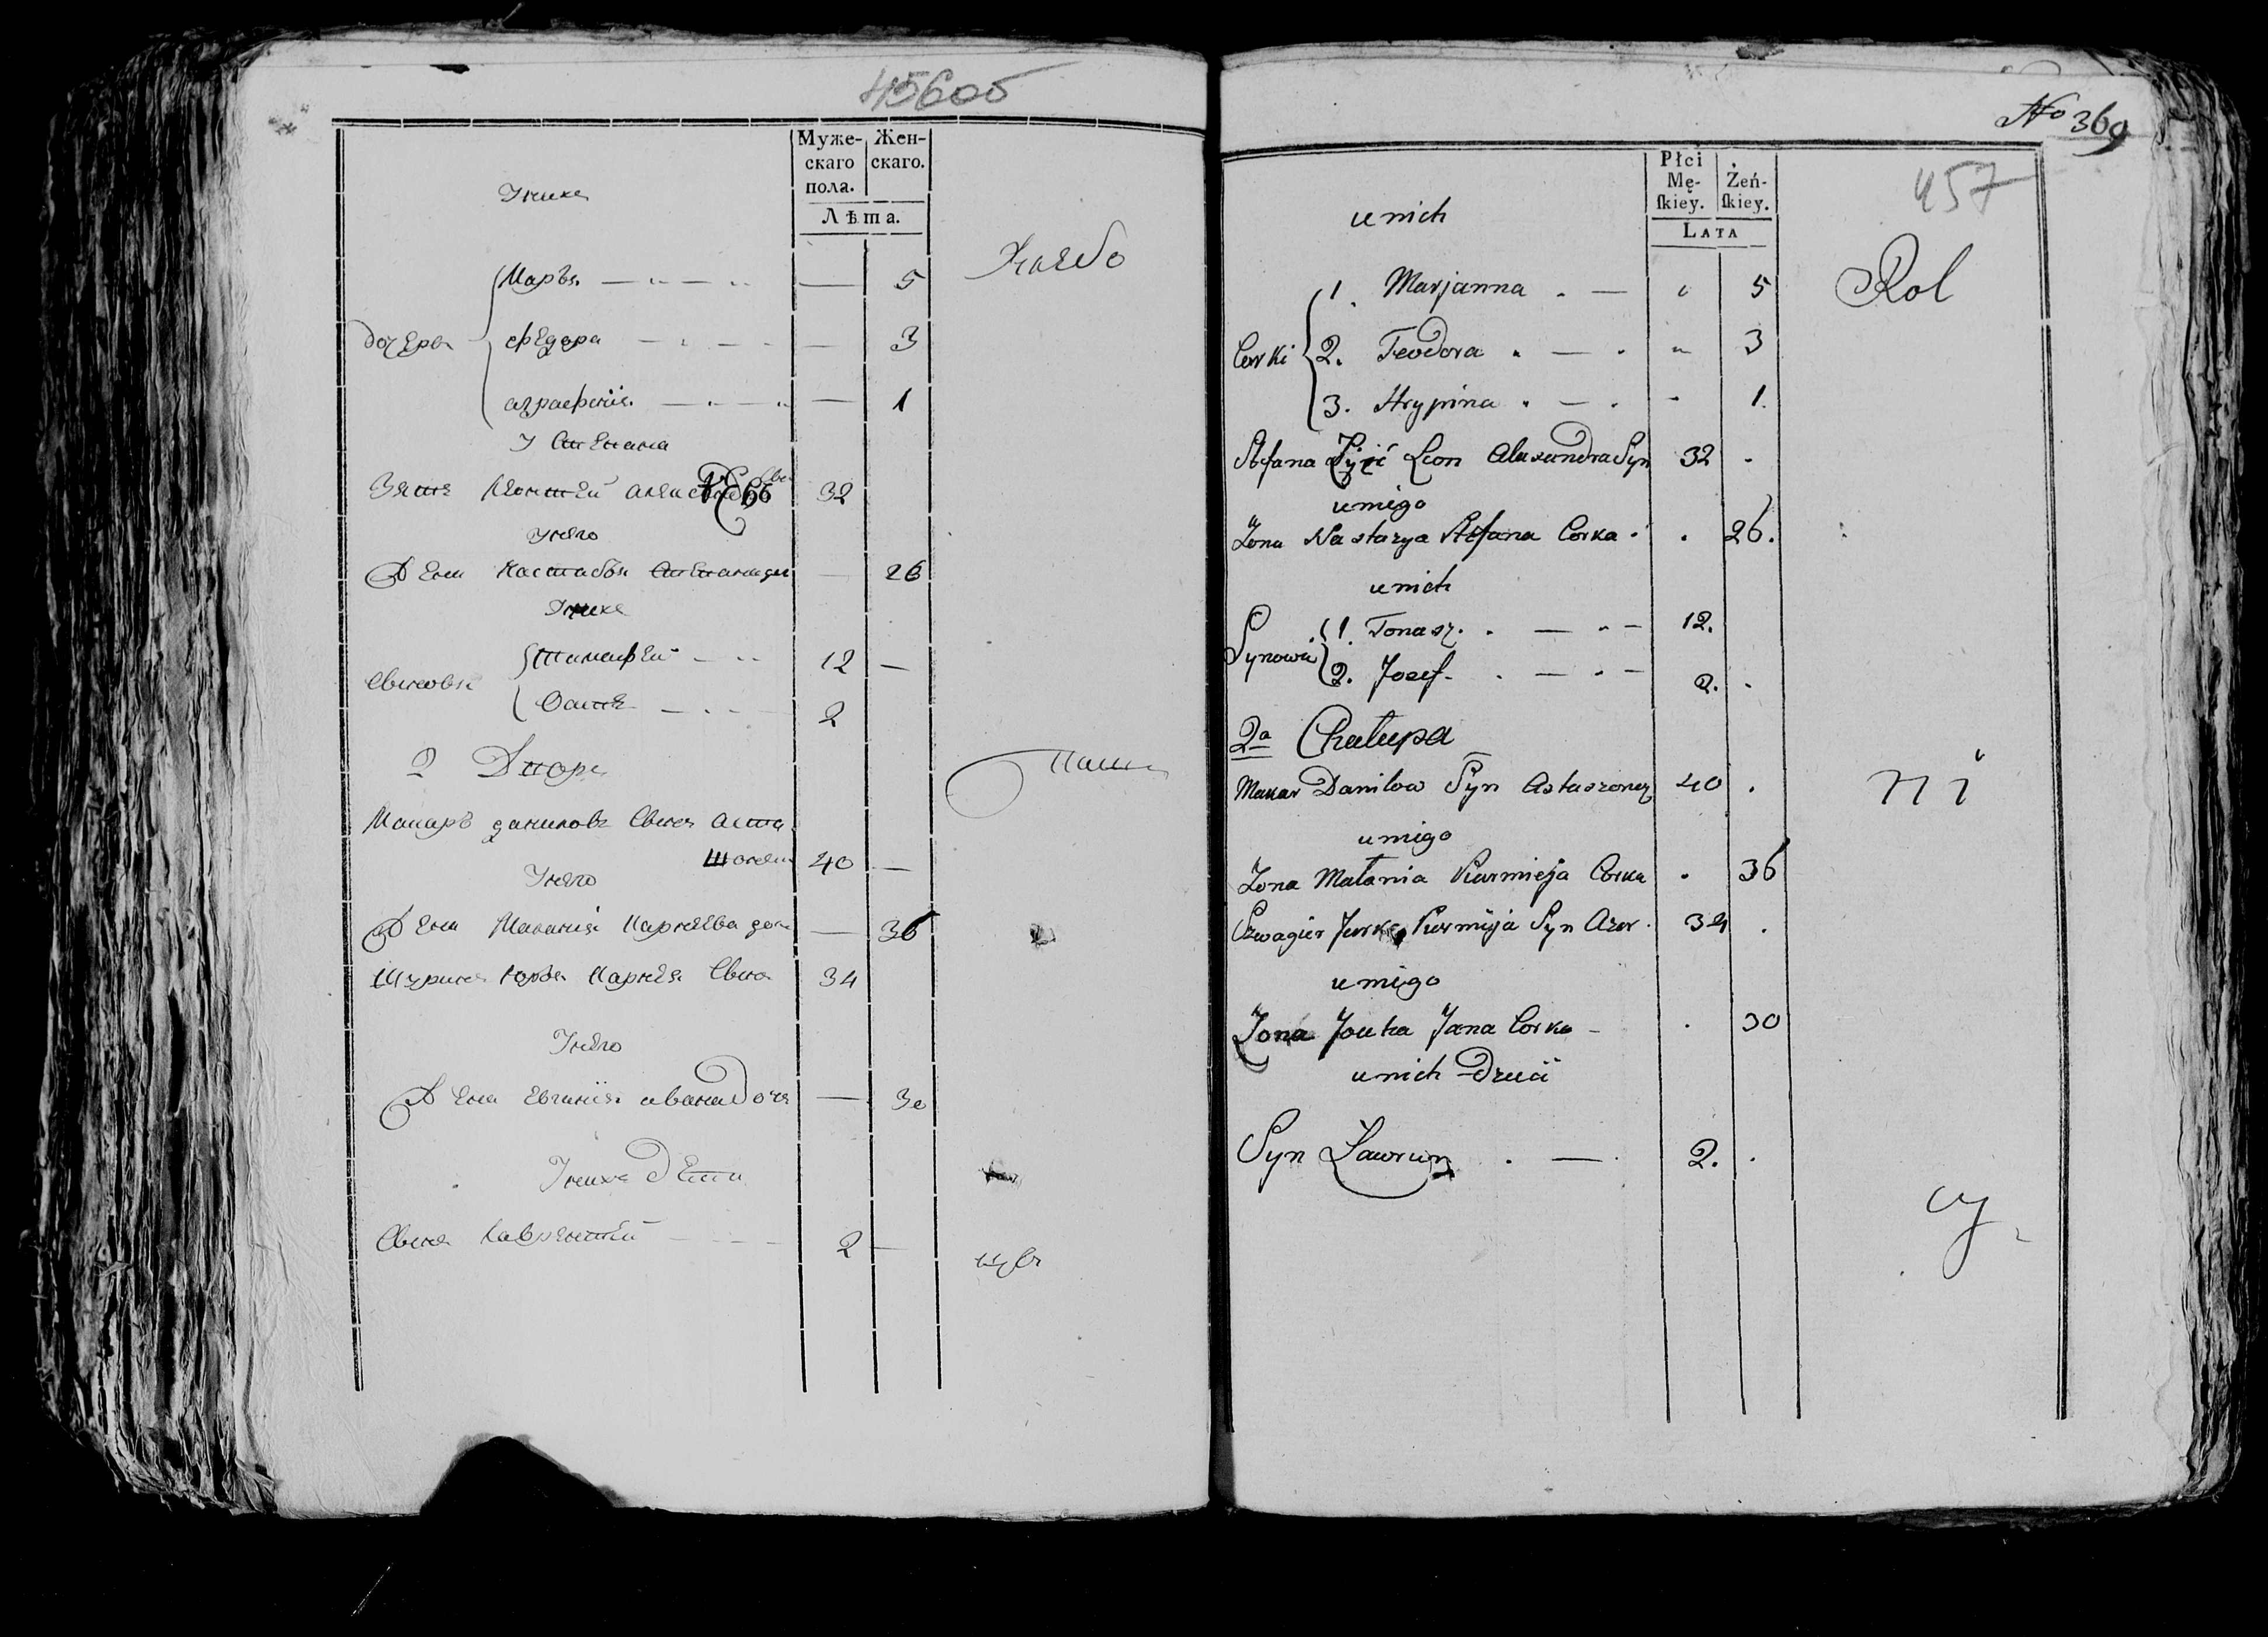 456об
Муже-
скаго
пола.
Жен-
скаго.
Лѣта.
У нихъ
Хлебо
дочери
Марья — — 5
Федора — — 3
аграфенiя — — 1
У Степана
Зять Леонтей 32
У него
Жена Настасья Степанида — 26
У нихъ
Сыновья
Тимафей 12 —
Осипъ 2
2 Дворъ
Паши
Макаръ даниловъ Сынъ Аста
шонокъ 40 —
У него
Жена Маланiя Карнеева доч — 36
Шуринъ Юрья Карнея Сынъ 34
У него
Жена Евгинiя ивана Дочь — 30
У нихъ Дети
Сынъ Лаврентей 2 —
цы
No 369
457
Płci
Mę-
ſkiey.
Żeń-
ſkiey.
LATA
u nich
Rol
Corki
1. Marjanna . — 5
2. Teodora . — . 3
3. Hrypina . — . 1.
Stefana Zięć Leon Alexandra Syn 32 .
u niego
Zona Nastazya Stefana Corka . . 26.
u nich
Synowie
1. Tomasz . — 12.
2. Jozef . — 2. .
2a Chałupa
Makar Danilow Syn Astaszonez 40 .
ni
u niego
Zona Małania Karnieja Corka . 36
Szwagier Jurka Karnieja Syn 34 .
u niego
Zona Jouha Jana Corka . 30
u nich Dzieci
Syn Ławryn . — . 2. .
cy